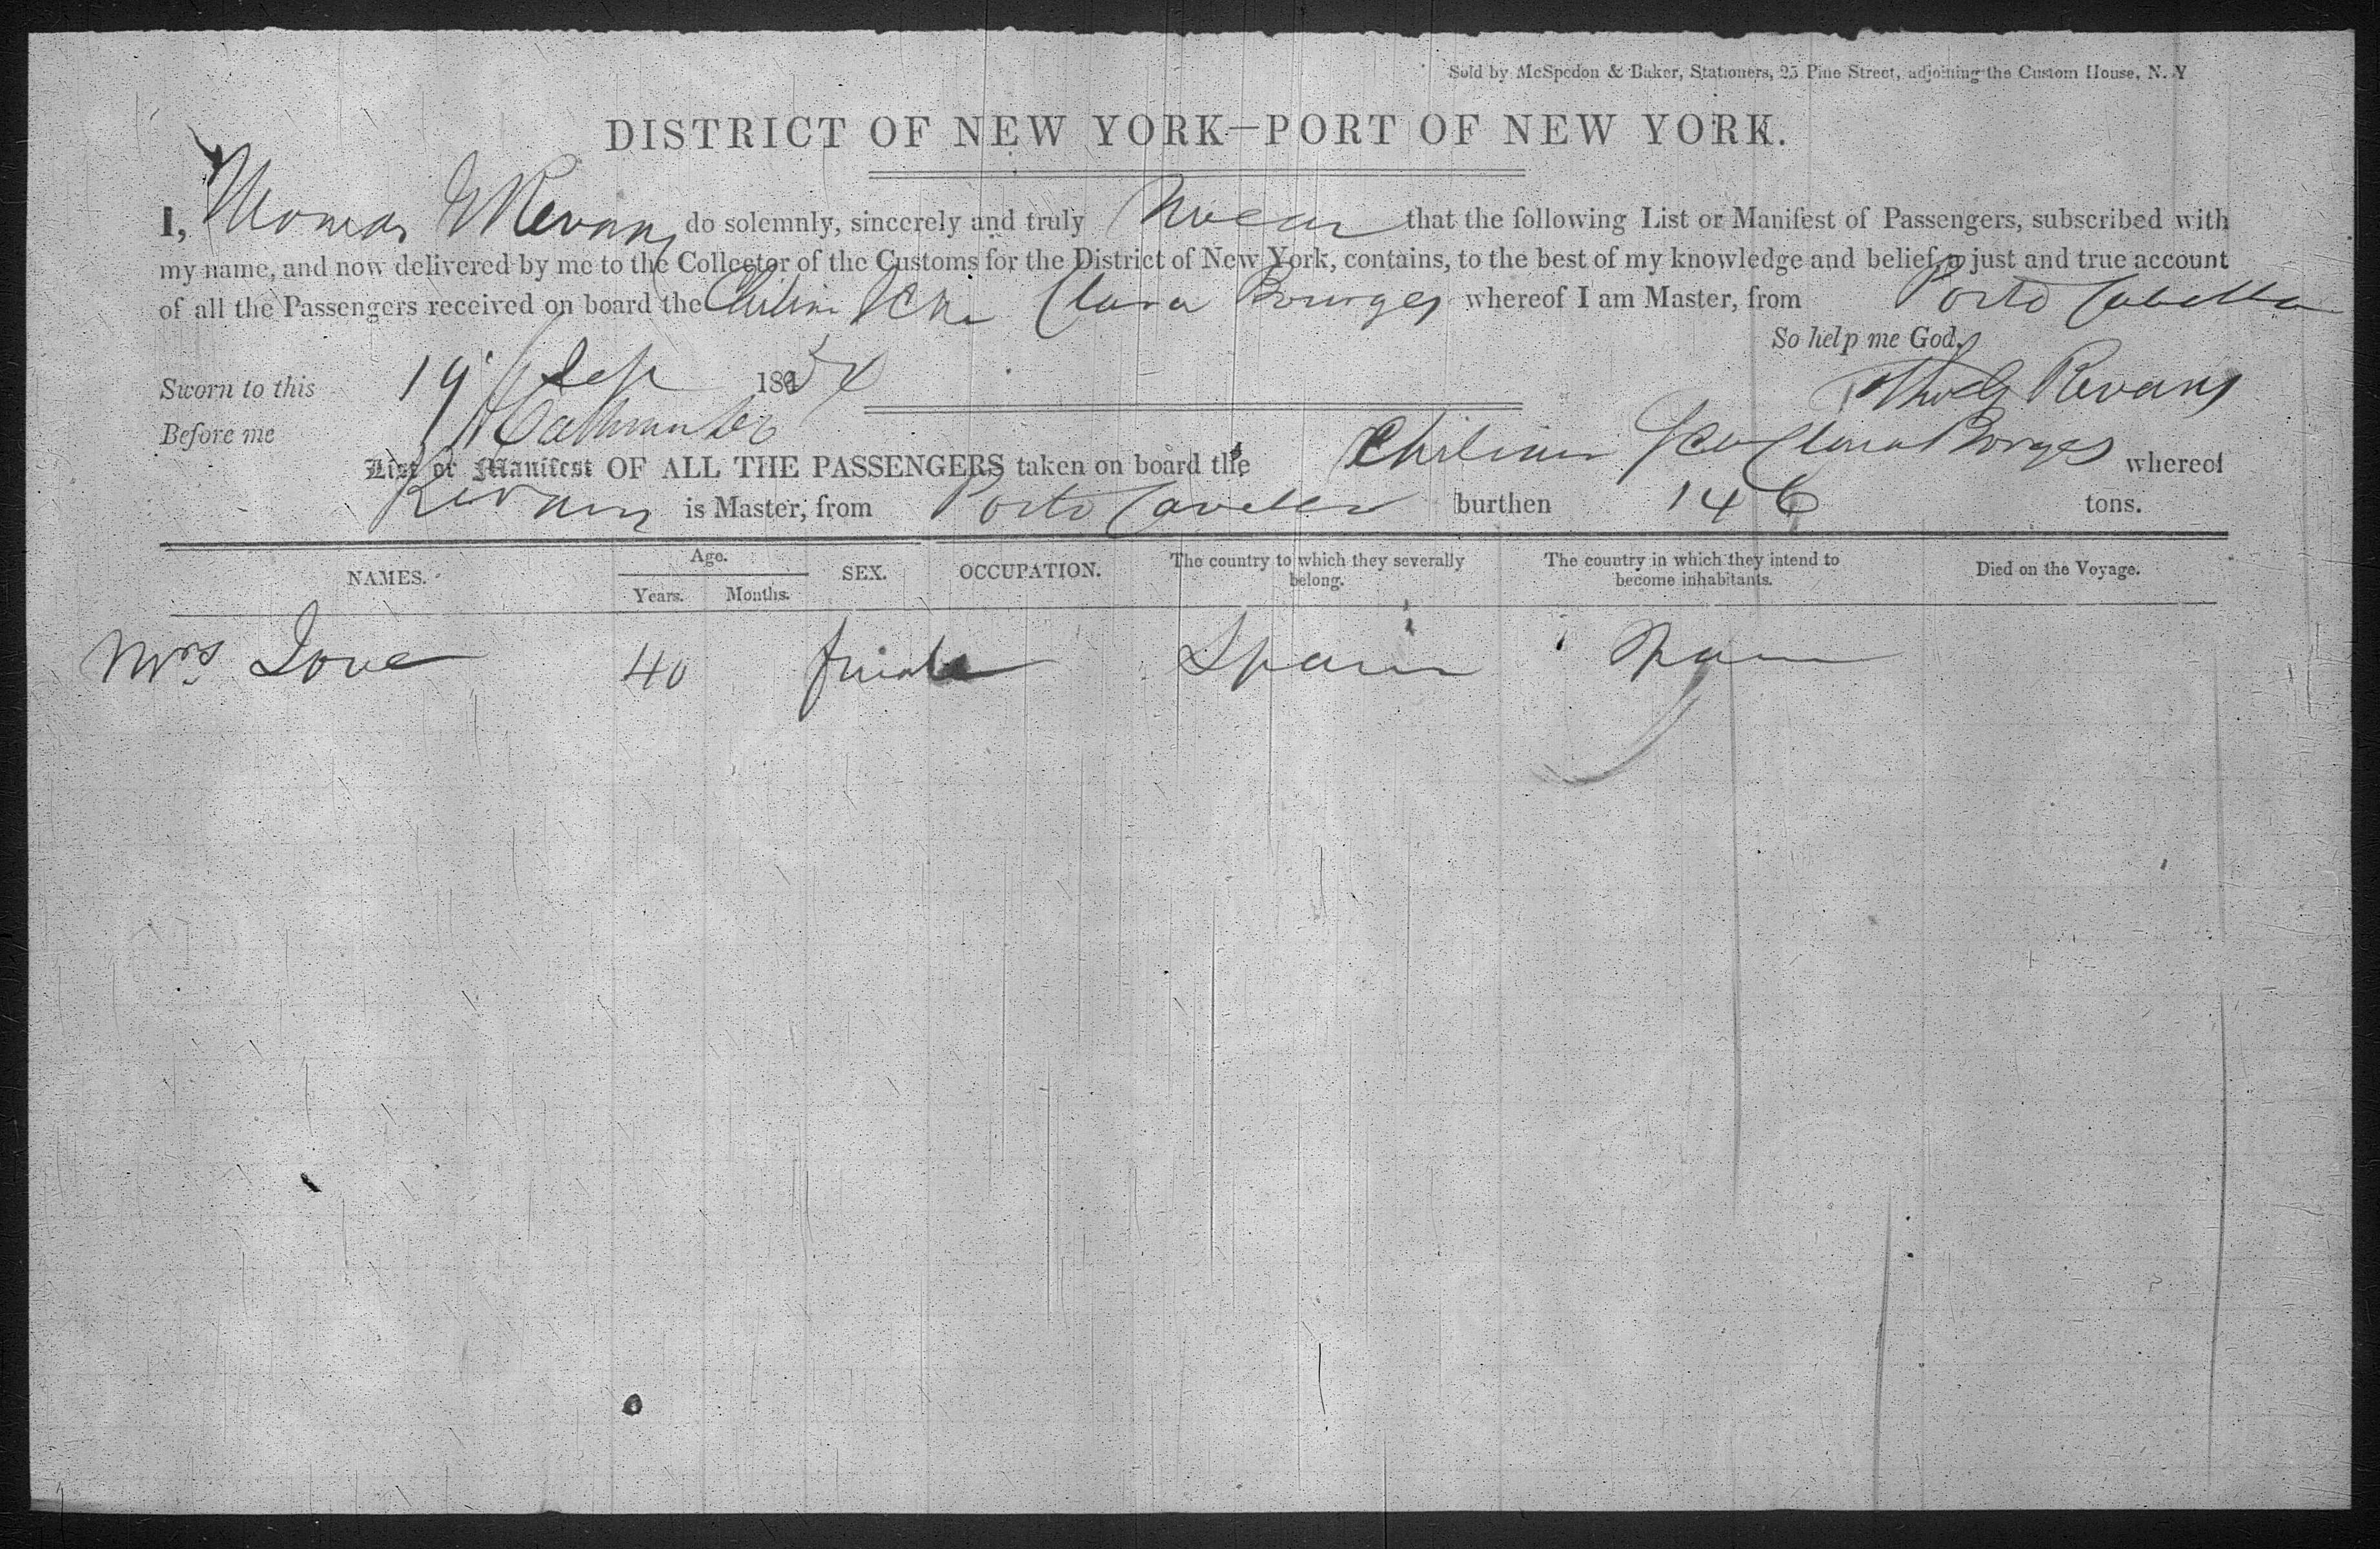 Sold by McSpedon & Baker, Stationers, 25 Pine Street, adjoining the Custom House, N. Y
DISTRICT OF NEW YORK—PORT OF NEW YORK.
I, Thomas G Revans do solemnly, sincerely and truly Swear that the following List or Manifest of Passengers, subscribed with
my name, and now delivered by me to the Collector of the Customs for the District of New York, contains, to the best of my knowledge and belief, a just and true account
of all the Passengers received on board the Chilian Schr Clara Bourges whereof I am Master, from Porto Cabello
So help me God.
Sworn to this 19 Sep 185
Thos G Revans
Before me
List or Manifest OF ALL THE PASSENGERS taken on board the Chilian Schr Clara Borges whereof
Revans is Master, from Porto Cavello burthen 146 tons.
NAMES. Age. Years. Months. SEX. OCCUPATION. The country to which they severally belong. The country in which they intend to become inhabitants. Died on the Voyage.
Mrs Love 40 female Spain Spain